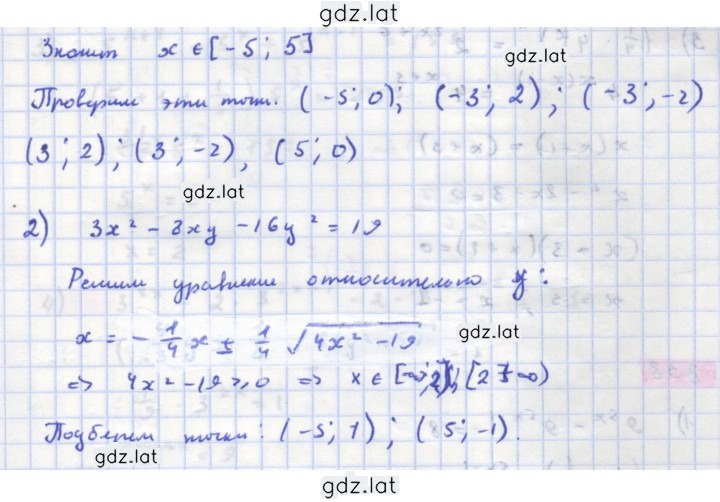 gdz.lat
Значит x ∈ [-5; 5]
gdz.lat
Проверим эти точки. (-5; 0); (-3; 2); (-3; -2)
(3; 2); (3; -2), (5; 0)
gdz.lat
2) 3x² - 8xy - 16y² = 19
Решим уравнение относительно y:
x = -1/4 x ± 1/4 √(4x² - 19)
gdz.lat
=> 4x² - 19 ≥ 0 => x ∈ [-∞; 2]; [2; +∞)
Подберем точки: (-5; 1); (5; -1).
gdz.lat
gdz.lat